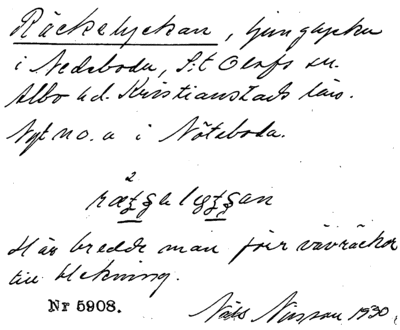 Räckelyckan, ljunglycka
i Nedeboda, S:t Olofs sn.
Albo hd. Kristianstads län.
Nyt no. a i Nöteboda.
2
Här bredde man förr vävräckor
till blekning.
Nr 5908.
Nils Nilsson 1930.